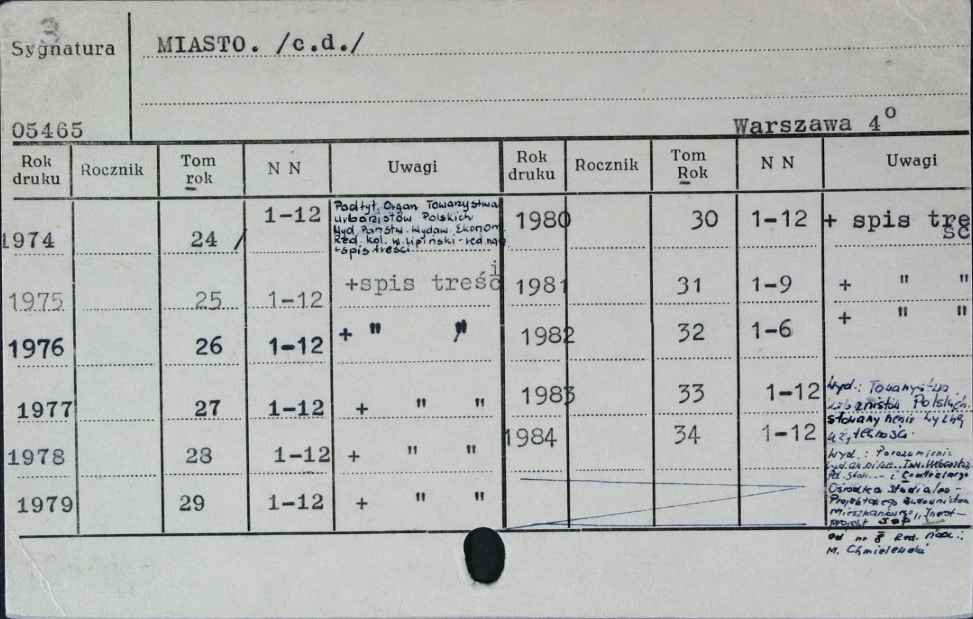 Sygnatura MIASTO. /c.d./
05465 Warszawa 4°
Rok druku Rocznik Tom rok N N Uwagi Rok druku Rocznik Tom Rok N N Uwagi
1974 24 / 1-12 Podtyt. Organ Towarzystwa
Urbanistów Polskich
Wyd. Państw. Wydaw. Ekonom.
Red. kol. W. Lipiński - red.
+spis treści
1975 25 1-12 +spis treści
1976 26 1-12 + " "
1977 27 1-12 + " "
1978 28 1-12 + " "
1979 29 1-12 + " "
1980 30 1-12 + spis tre
ść
1981 31 1-9 + " "
1982 32 1-6 + " "
1983 33 1-12 Wyd.: Towarzystwo
Polskich
1984 34 1-12
Wyd.: Porozumienie
i Centralnego
Ośrodka
Budownictwa
od nr 8 Red. nacz.:
M. Chmielewski